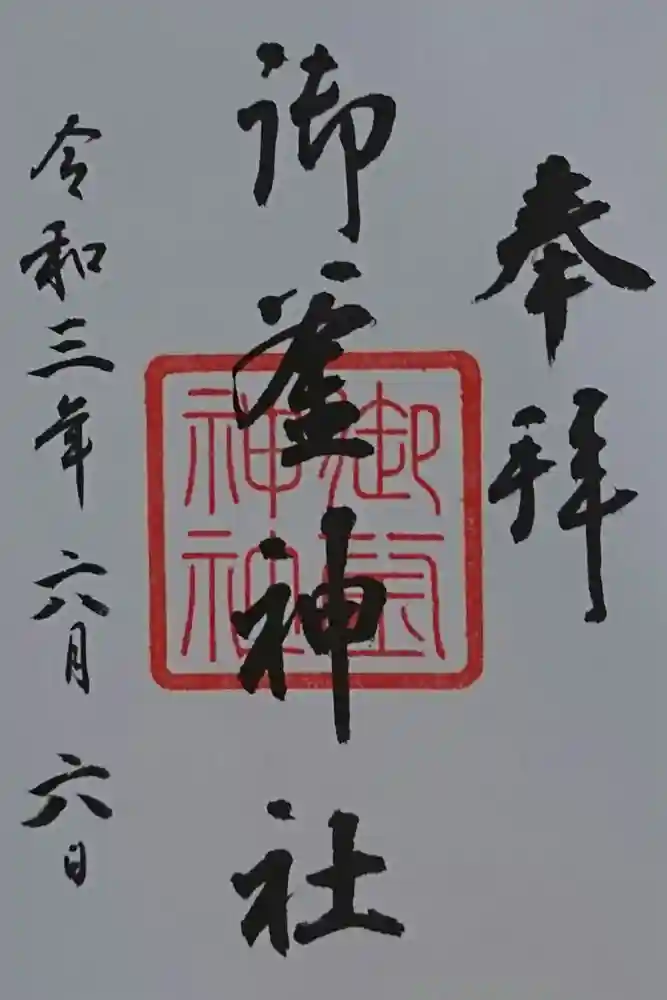 奉拝
御釜神社
御釜神社
令和三年六月六日